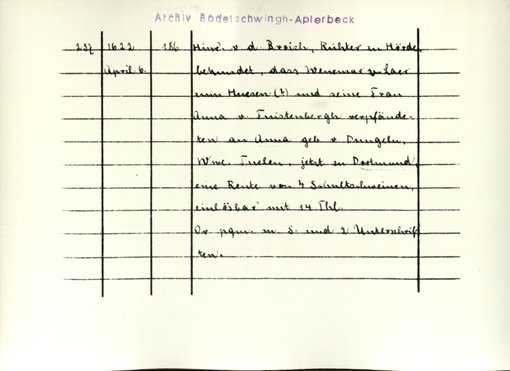 Archiv Bodelschwingh-Aplerbeck
237 1622 186 Hinr. v. d. Broich, Richter in Hörde,
April 6. bekundet, dass Wenemar v. Laer
zum Huesen (?) und seine Frau
Anna v. Fuistenbergh verpfände-
ten an Anna geb. v. Dungeln,
Wwe. Tuelen, jetzt zu Dortmund,
eine Rente von 4 Schultschweinen,
einlösbar mit 14 Thl.
Or. pgm. m. S. und 2 Unterschrif-
ten.